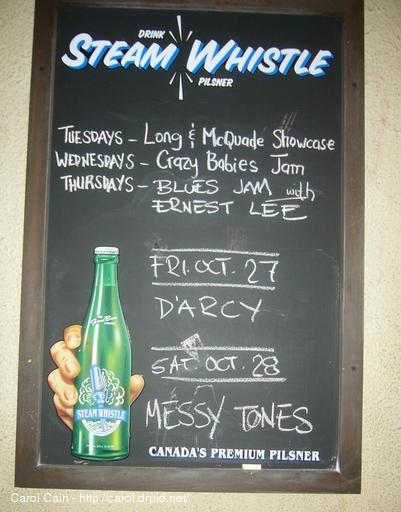 DRINK
STEAM WHISTLE
PILSNER
TUESDAYS - Long & McQuade Showcase
WEDNESDAYS - Crazy Babies Jam
THURSDAYS - BLUES JAM with
ERNEST LEE
FRI. OCT. 27
D'ARCY
SAT. OCT. 28
MESSY TONES
STEAM WHISTLE
CANADA'S PREMIUM PILSNER
Carol Cain - http://carol.druid.net/